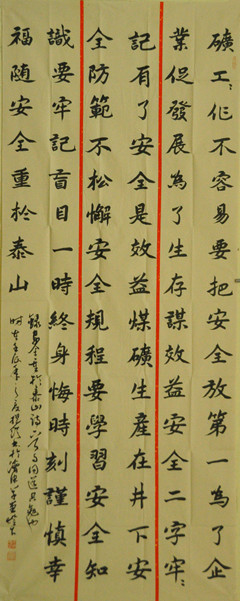 礦工:作不容易要把安全放第一為了企
業促發展為了生存謀效益安全二字牢:
記有了安全是效益煤礦生產在井下安
全防範不松懈安全規程要學習安全知
識要牢記盲目一時終身悔時刻謹慎幸
福随安全重於泰山